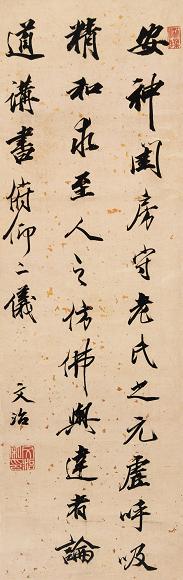 安神闺房守老氏之元虛呼吸
精和求至人之仿佛與達者論
道講書俯仰二儀
文治